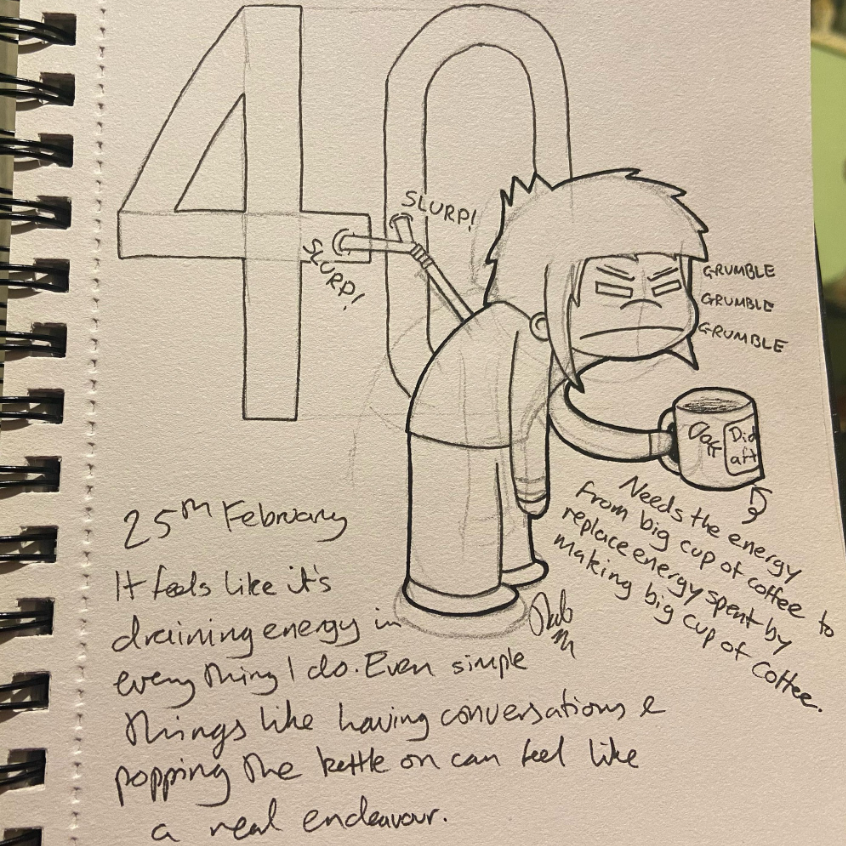 40
SLURP!
SLURP!
GRUMBLE
GRUMBLE
GRUMBLE
Did
aft
Needs the energy
from big cup of coffee to
replace energy spent by
making big cup of coffee.
25th February
It feels like it's
draining energy in
every thing I do. Even simple
things like having conversations &
popping the kettle on can feel like
a real endeavour.